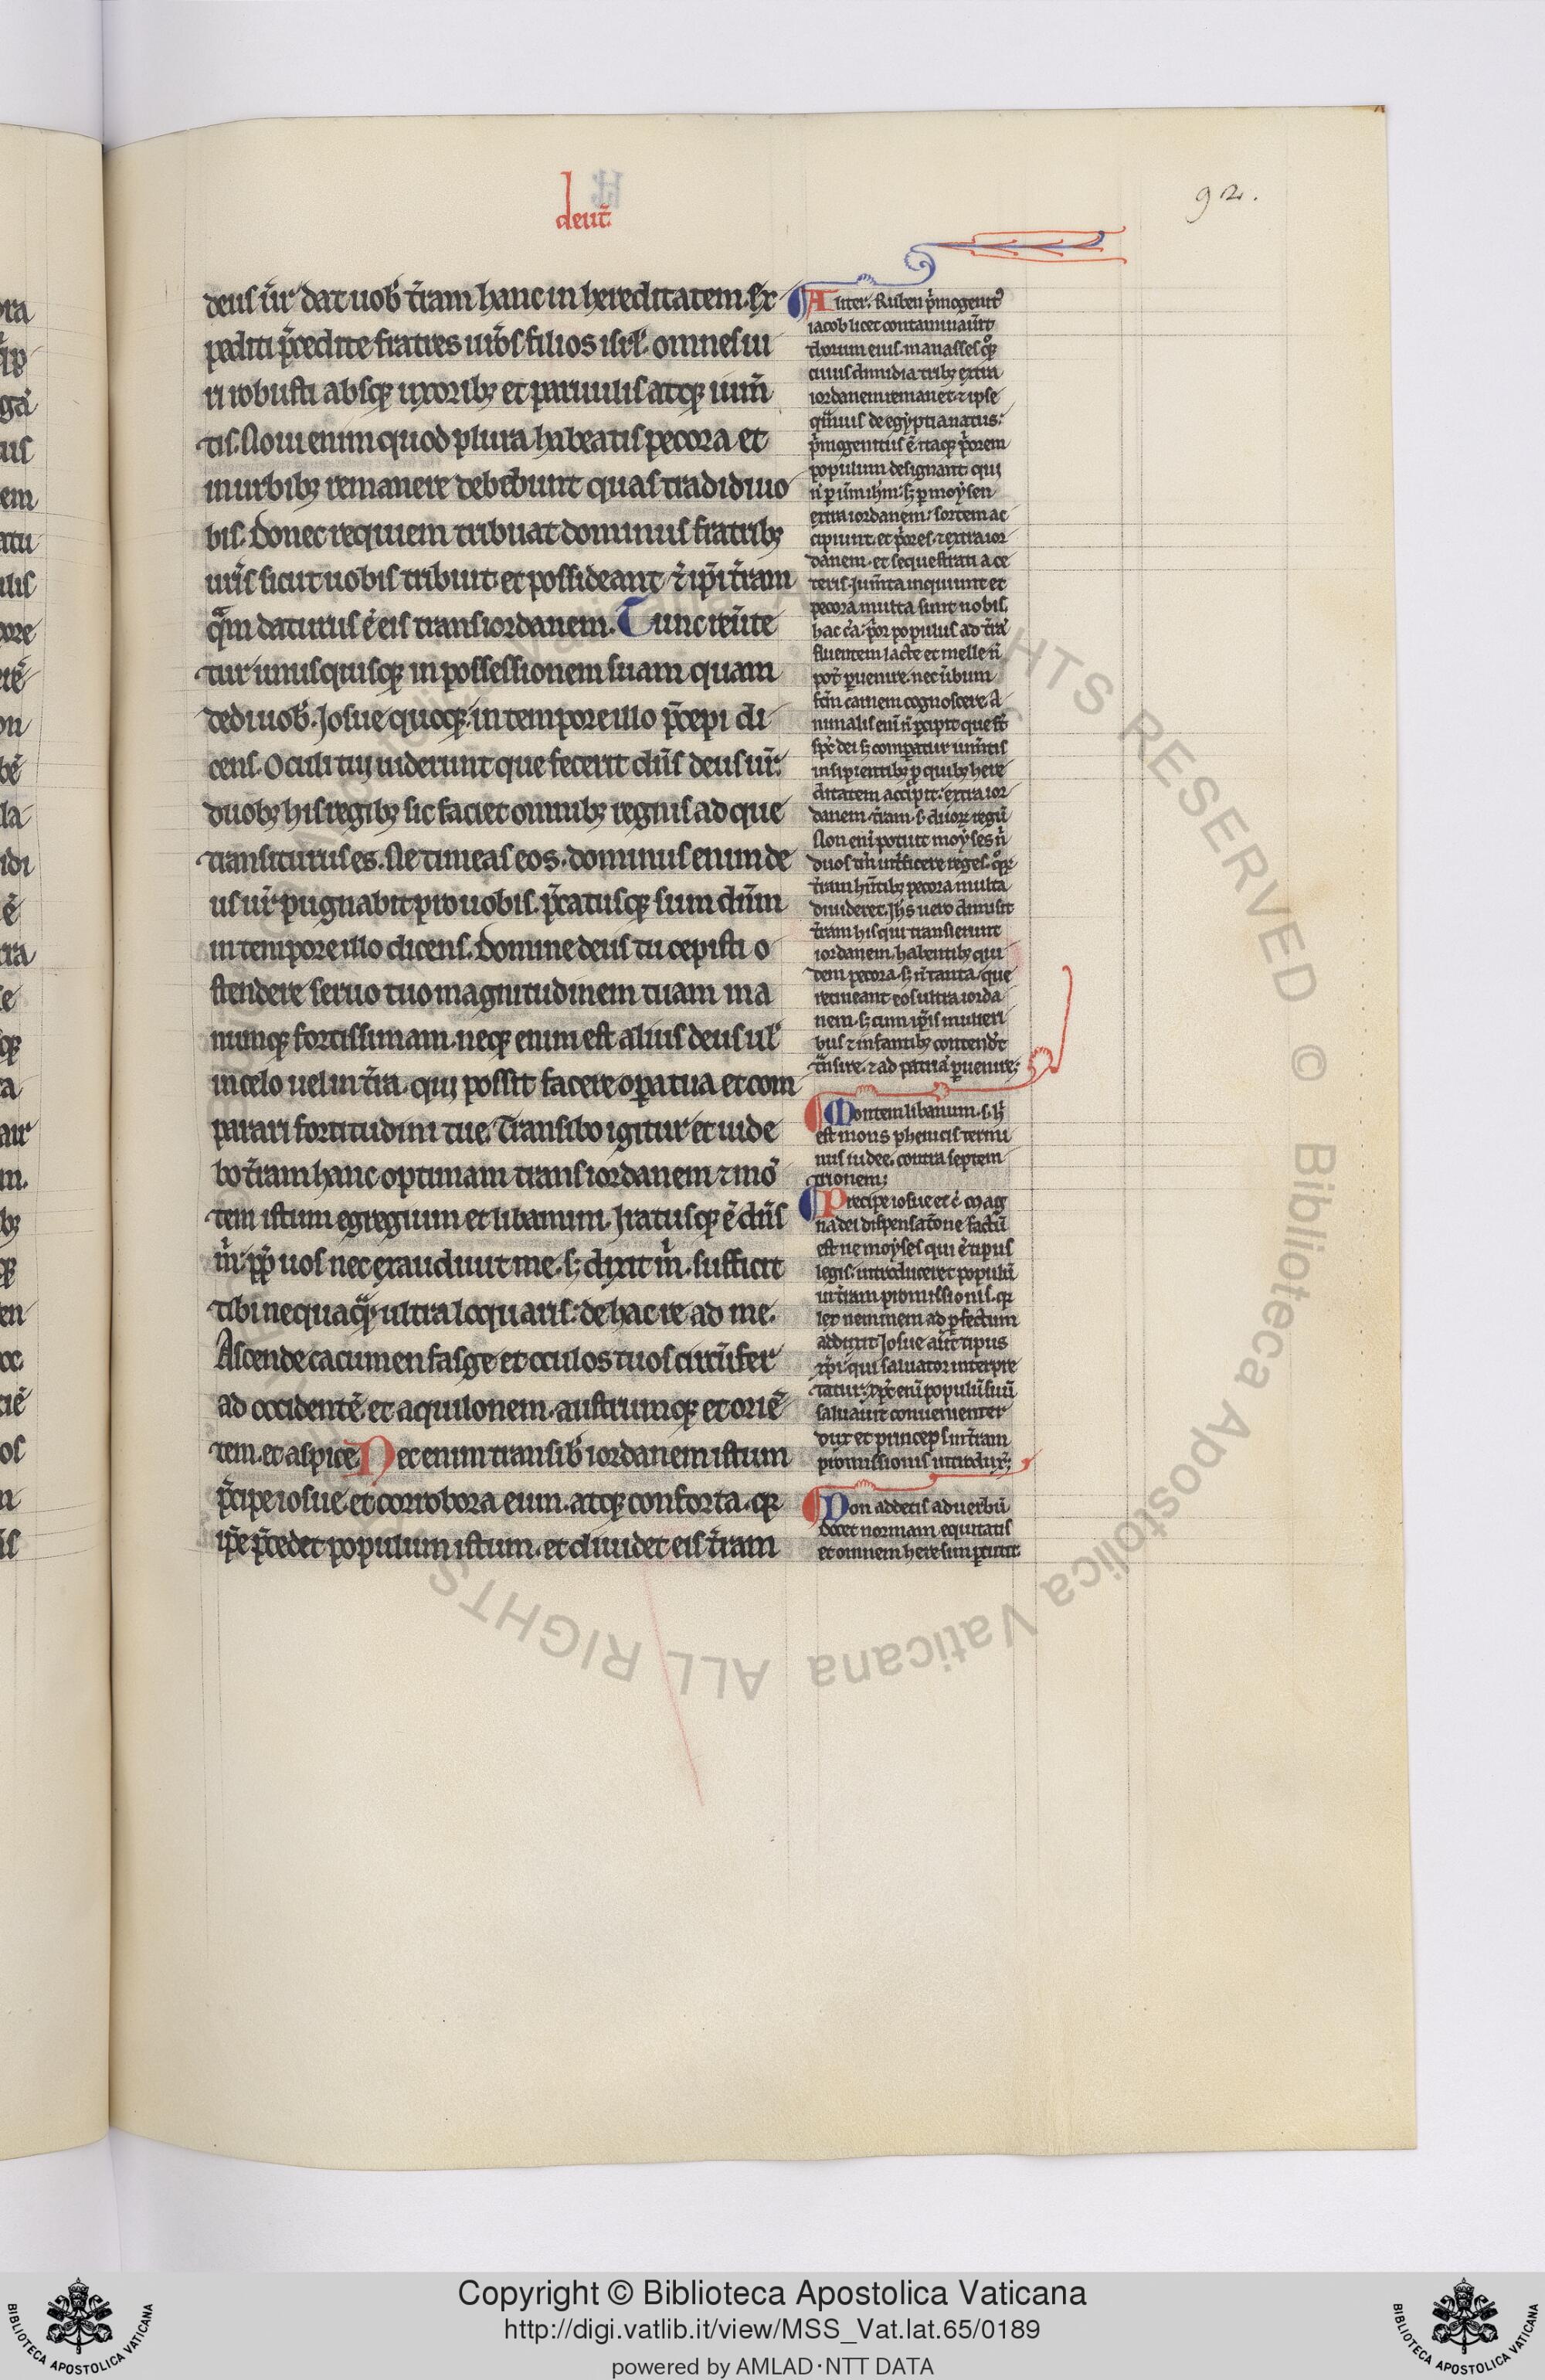 deut᷑.
92.
deus ur̄ dat uob̄ t̄ram hanc in hereditatem. Ex
pediti p̄cedite fratres ur̄os filios isrl̄. omnes ui
ri robusti absq; uxorib; et paruulis atq; ium̄
tis. Noui enim quod plura habeatis pecora et
in urbib; remanere debebunt quas tradidi uo
bis. Donec requiem tribuat dominus fratrib;
ur̄is sicut uobis tribuit et possideant ⁊ ip̄i t̄ram
q̄m daturus ē eis trans iordanem. Tunc reūte
tur unusquisq; in possessionem suam quam
dedi uob̄. Iosue quoq; in tempore illo p̄cepi di
cens. Oculi tui uiderunt que fecerit dn̄s deus ur̄.
duob; his regib; sic faciet omnib; regnis ad que
transiturus es. Ne timeas eos. dominus enim de
us ur̄ pugnabit pro uobis. p̄catusq; sum dn̄m
in tempore illo dicens. Domine deus tu cepisti o
stendere seruo tuo magnitudinem tuam ma
numq; fortissimam. neq; enim est alius deus ul̄
in celo uel in t̄ra. qui possit facere opera tua et com
parari fortitudini tue. Transibo igitur et uide
bo t̄ram hanc optimam trans iordanem ⁊ mō
tem istum egregium et libanum. Iratusq; ē dn̄s
m̄. pp̄ uos nec exaudiuit me. s; dixit m̄. sufficit
tibi nequaq̄. ultra loquaris. de hac re ad me.
Ascende cacumen fasge et oculos tuos circūfer
ad occidentē. et aquilonem. austrumq; et oriē
tem. et aspice. Nec enim transib̄ iordanem istum
p̄cipe iosue. et corrobora eum. atq; conforta. q̄
ip̄e p̄cedet populum istum. et diuidet eis t̄ram
Aliter. Ruben p̄mogenit᷒
iacob licet contaminau̅it
thorum eius. manasses q̊q;
cuius dimidia trib; extra
iordanem remanet. ⁊ ipse
q̄muis de egyptia natus.
p̄mogenitus ē. itaq; p̄orem
populum designant qui
n̄ p ih̄m. s; p moysen
extra iordanem. sortem ac
cipiunt. et p̄ores. ⁊ extra ior
danem. et sequestrati a ce
teris. Ium̄ta inquiunt et
pecora multa sunt nobis.
hac cā. p̄or populus ad t̄rā
fluentem lacte et melle n̄
pot̄ puenire. nec ūbum
fcm̄ carnem cognoscere. A
nimalis eni n̄ pcipit que st̄
sp̄c dei s; compatur ium̄tis
insipientib; p quib; here
ditatem accipit. extra ior
danem. t̄ram. s. duor; regū
Non eni potuit moyses n̄
duos tm̄ int̄ficere reges. q̊r;
t̄ram hn̄tib; pecora multa
diuideret. Ih̄s uero dimisit
t̄ram his qui transierunt
iordanem. habentib; qui
dem pecora. s; n̄ tanta. que
retineant eos ultra iorda
nem. s; cum ip̄is mulieri
bus ⁊ infantib; contendēt
t̄nsire. ⁊ ad patriā puenire;
Montem libanum. s. h̄
est mons phenicis termi
nus iudee. contra septem
trionem;
Precipe iosue et c̄. Mag
na dei dispensatōne factū
est ne moyses qui ē tipus
legis. introduceret populū
in t̄ram promissionis. q̄
lex neminem ad pfectum
adduxit. Iosue aut̄ tipus
xp̄i. qui saluator interpre
tatur. xp̄c eni populū suū
saluauit conuenienter
dux et princeps in t̄ram
promissionis int̊ducit᷑;
Non addetis ad uerbū
docet normam equitatis
et omnem heresim pimit.
Copyright © Biblioteca Apostolica Vaticana
http://digi.vatlib.it/view/MSS_Vat.lat.65/0189
powered by AMLAD·NTT DATA